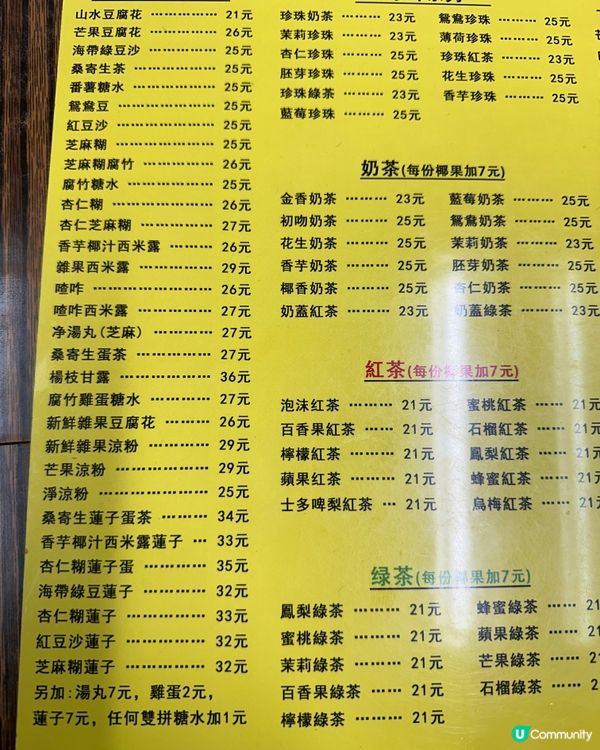 山水豆腐花 ········· 21元
芒果豆腐花 ········· 26元
海帶綠豆沙 ········· 25元
桑寄生茶 ············ 25元
番薯糖水 ············ 25元
鴛鴦豆 ··············· 25元
紅豆沙 ··············· 25元
芝麻糊 ··············· 25元
芝麻糊腐竹 ········· 26元
腐竹糖水 ············ 25元
杏仁糊 ··············· 26元
杏仁芝麻糊 ········· 27元
香芋椰汁西米露 ······ 26元
雜果西米露 ········· 29元
喳咋 ·················· 26元
喳咋西米露 ········· 27元
净湯丸(芝麻) ······ 27元
桑寄生蛋茶 ········· 27元
楊枝甘露 ············ 36元
腐竹雞蛋糖水 ······ 27元
新鮮雜果豆腐花 ······ 26元
新鮮雜果涼粉 ······ 29元
芒果涼粉 ············ 29元
淨涼粉 ··············· 25元
桑寄生蓮子蛋茶 ······ 34元
香芋椰汁西米露蓮子 ··· 33元
杏仁糊蓮子蛋 ······ 35元
海帶綠豆蓮子 ······ 32元
杏仁糊蓮子 ········· 33元
紅豆沙蓮子 ········· 32元
芝麻糊蓮子 ········· 32元
另加:湯丸7元，雞蛋2元，
蓮子7元，任何雙拼糖水加1元
珍珠奶茶 ········· 23元 鴛鴦珍珠 ········· 25元
茉莉珍珠 ········· 23元 薄荷珍珠 ········· 25元
杏仁珍珠 ········· 25元 珍珠紅茶 ········· 23元
胚芽珍珠 ········· 25元 花生珍珠 ········· 25元
珍珠綠茶 ········· 23元 香芋珍珠 ········· 25元
藍莓珍珠 ········· 25元
奶茶(每份椰果加7元)
金香奶茶 ········· 23元 藍莓奶茶 ········· 25元
初吻奶茶 ········· 25元 鴛鴦奶茶 ········· 25元
花生奶茶 ········· 25元 茉莉奶茶 ········· 23元
香芋奶茶 ········· 25元 胚芽奶茶 ········· 25元
椰香奶茶 ········· 25元 杏仁奶茶 ········· 25元
奶蓋紅茶 ········· 23元 奶蓋綠茶 ········· 23元
紅茶(每份椰果加7元)
泡沫红茶 ········· 21元 蜜桃紅茶 ······ 21元
百香果紅茶 ······ 21元 石榴紅茶 ······ 21元
檸檬紅茶 ········· 21元 鳳梨紅茶 ······ 21
蘋果红茶 ········· 21元 蜂蜜紅茶 ······ 21
士多啤梨紅茶 ··· 21元 烏梅紅茶 ······ 21
绿茶(每份椰果加7元)
鳳梨綠茶 ········· 21元 蜂蜜綠茶 ······ 21
蜜桃綠茶 ········· 21元 蘋果綠茶 ······ 21
茉莉綠茶 ········· 21元 芒果綠茶 ······ 2
百香果綠茶 ······ 21元 石榴綠茶 ······ 2
檸檬綠茶 ········· 21元
U Community